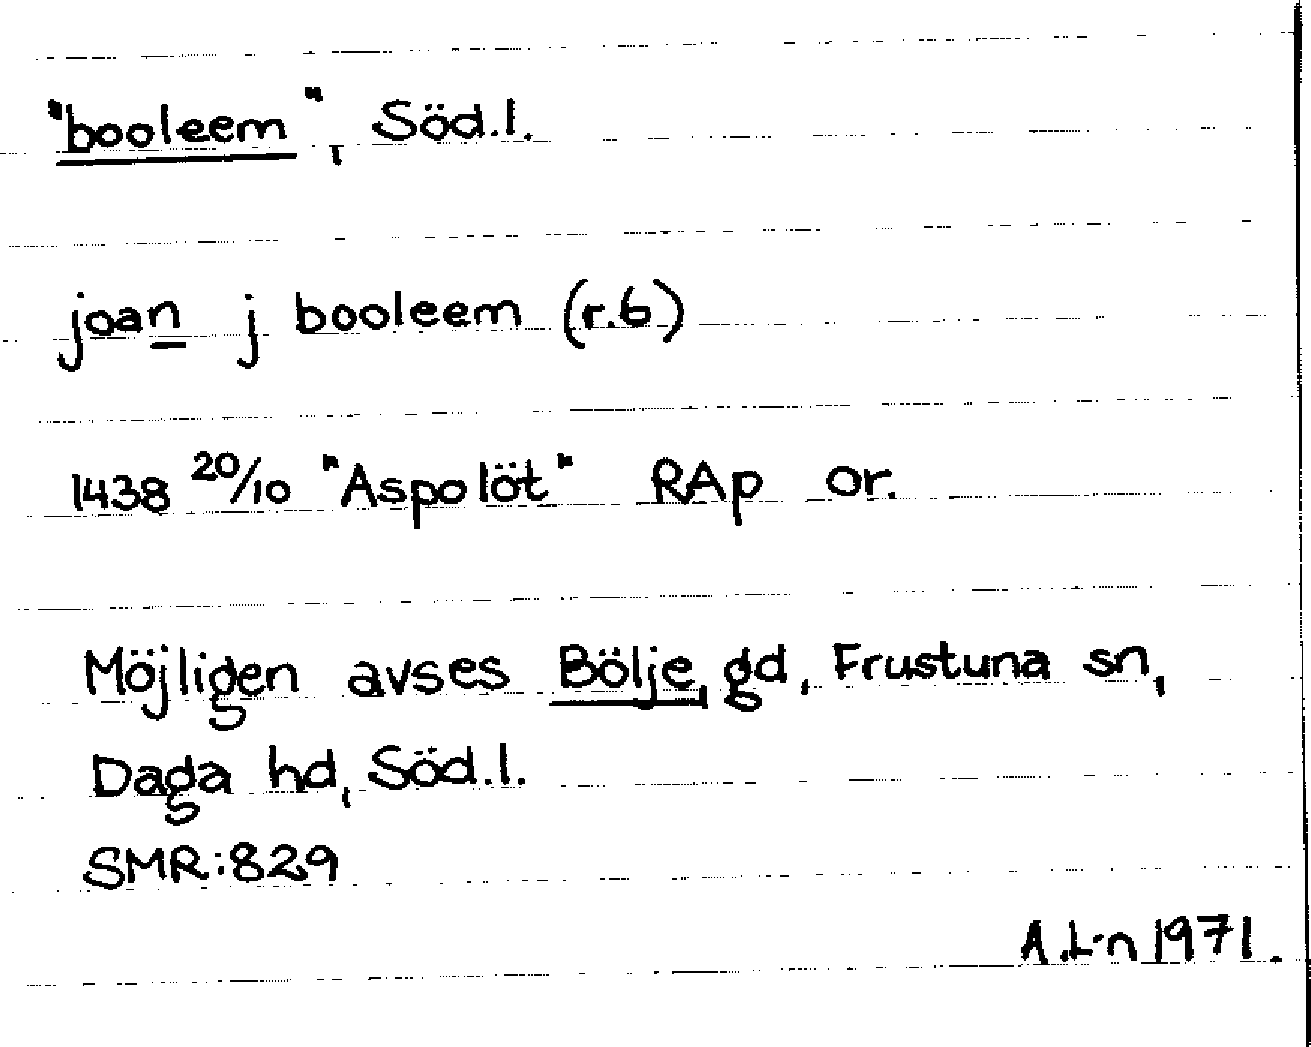 "booleem", Söd.l.
joan j booleem (r.6)
1438 20/10 "Aspolöt" RAp or.
Möjligen avses Bölje, gd, Frustuna sn,
Daga hd, Söd.l.
SMR:829
A.L-n 1971.